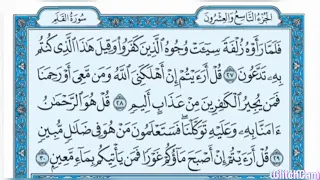 الجزء التاسع والعشرون
سورة القلم
فَلَمَّا رَأَوْهُ زُلْفَةً سِيٓـَٔتْ وُجُوهُ ٱلَّذِينَ كَفَرُوا۟ وَقِيلَ هَٰذَا ٱلَّذِى كُنتُم
بِهِۦ تَدَّعُونَ ٢٧ قُلْ أَرَءَيْتُمْ إِنْ أَهْلَكَنِىَ ٱللَّهُ وَمَن مَّعِىَ أَوْ رَحِمَنَا
فَمَن يُجِيرُ ٱلْكَٰفِرِينَ مِنْ عَذَابٍ أَلِيمٍ ٢٨ قُلْ هُوَ ٱلرَّحْمَٰنُ
ءَامَنَّا بِهِۦ وَعَلَيْهِ تَوَكَّلْنَا فَسَتَعْلَمُونَ مَنْ هُوَ فِى ضَلَٰلٍ مُّبِينٍ
٢٩ قُلْ أَرَءَيْتُمْ إِنْ أَصْبَحَ مَآؤُكُمْ غَوْرًا فَمَن يَأْتِيكُم بِمَآءٍ مَّعِينٍۭ ٣٠
WlitchCam